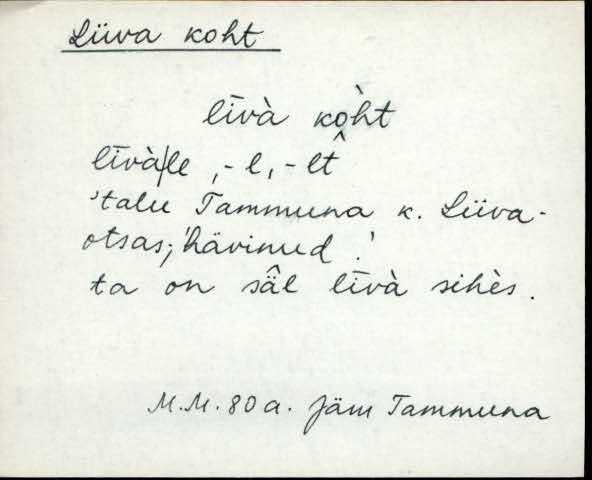 Liiva koht
līvà ko̭h̀t
līvà|le, -l, -lt̂
'talu Tammuna k. Liiva-
otsas; 'hävinud.'
ta on sä̂l līvà sihès.
M.M. 80 a. Jäm Tammuna